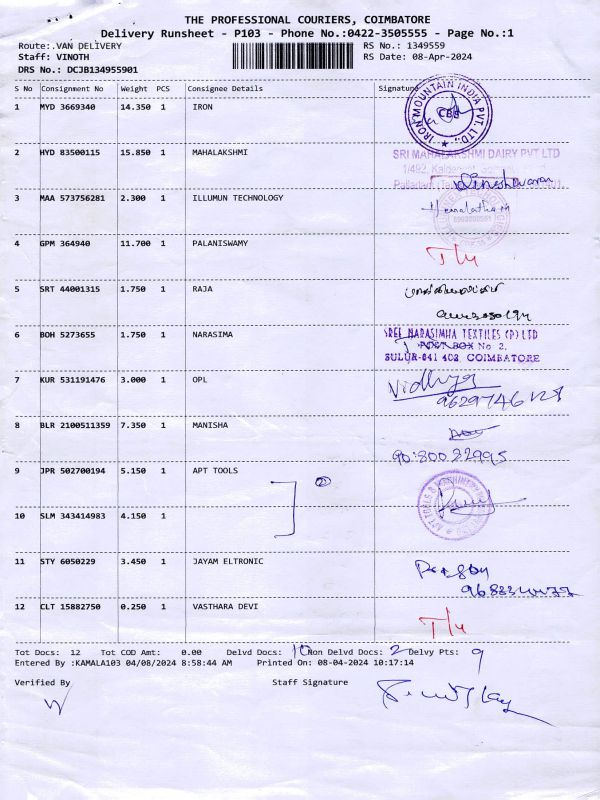 THE PROFESSIONAL COURIERS, COIMBATORE
Delivery Runsheet - P103 - Phone No.:0422-3505555 - Page No.:1
Route:.VAN DELIVERY RS No.: 1349559
Staff: VINOTH RS Date: 08-Apr-2024
DRS No.: DCJB134955901
S No Consignment No Weight PCS Consignee Details Signature
1 MYD 3669340 14.350 1 IRON
IRON MOUNTAIN INDIA PVT. LTD. CBE
2 HYD 83500115 15.850 1 MAHALAKSHMI
SRI MAHALAKSHMI DAIRY PVT LTD
1/492,
Dineshwaran
3 MAA 573756281 2.300 1 ILLUMUN TECHNOLOGY
Hemalatha M
4 GPM 364940 11.700 1 PALANISWAMY
T/4
5 SRT 44001315 1.750 1 RAJA
6 BOH 5273655 1.750 1 NARASIMA
SREE NARASIMHA TEXTILES (P) LTD
POST BOX No 2.
SULUR-641 402 COIMBATORE
7 KUR 531191476 3.000 1 OPL
Vidhya
8 BLR 2100511359 7.350 1 MANISHA
9 JPR 502700194 5.150 1 APT TOOLS
2
10 SLM 343414983 4.150 1
11 STY 6050229 3.450 1 JAYAM ELTRONIC
12 CLT 15882750 0.250 1 VASTHARA DEVI
T/4
Tot Docs: 12 Tot COD Amt: 0.00 Delvd Docs: 10 Non Delvd Docs: 2 Delvy Pts: 9
Entered By :KAMALA103 04/08/2024 8:58:44 AM Printed On: 08-04-2024 10:17:14
Verified By Staff Signature